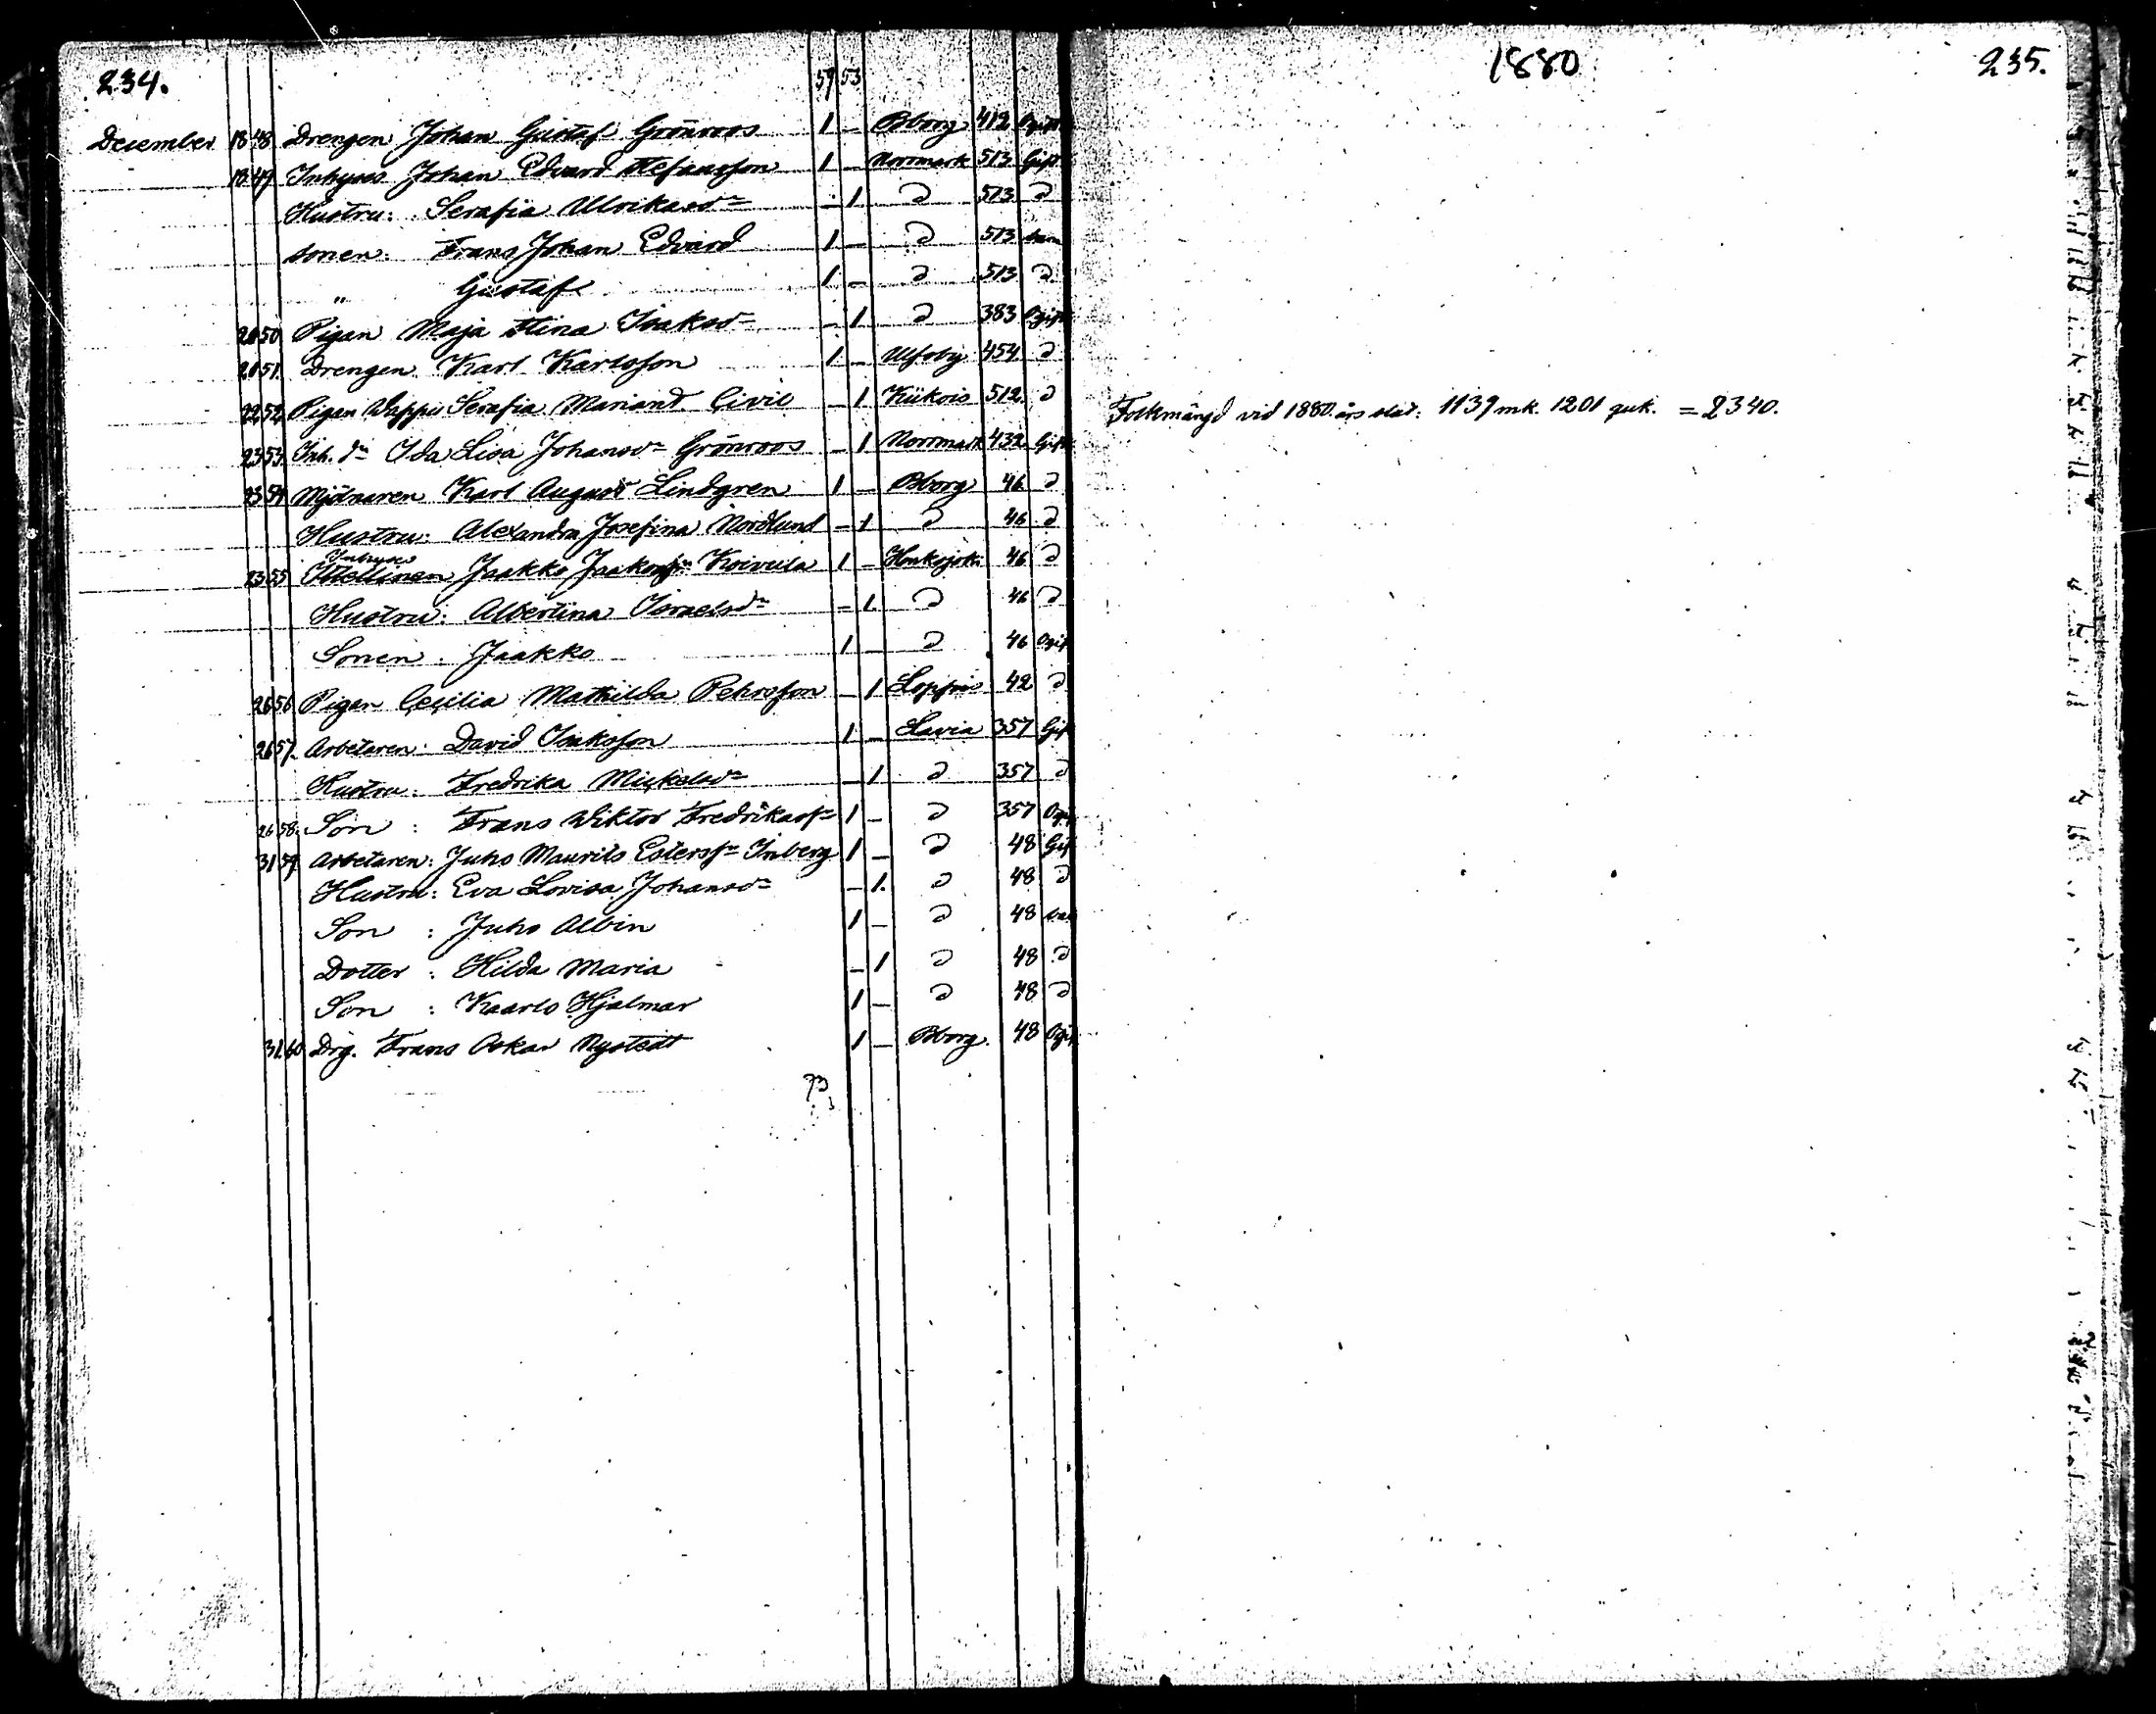 234.
59 53
December 18 48 Drengen Johan Gustaf Grönroos 1 – Bborg 412 Ogift
18 49 Inhyses Johan Edvard Stefansson 1 – Norrmark 513 Gift
Hustru: Serafia Ulrikasdr – 1 D 513 D
Sonen: Frans Johan Edvard 1 – D 513 barn
" Gustaf 1 – D 513 D
20 50 Pigan Maja Stina Isaksdr – 1 D 383 Ogift
20 51 Drengen Karl Karlsson 1 – Ulfsby 454 D
22 52 Pigan Serafia Civil – 1 Kiikois 512 D
23 53 Inh. dr Ida Lisa Johansdr Grönroos – 1 Norrmark 432 Gift
23 54 Mjölnaren Karl August Lindgren 1 – Bborg 46 D
Hustru: Alexandra Josefina Nordlund – 1 D 46 D
Inhyses
23 55 Jaakko Jaakonpn Koivula 1 – Honkajoki 46 D
Hustru: Albertina Israelsdr – 1 D 46 D
Sonen: Jaakko 1 – D 46 Ogift
26 56 Pigan Cecilia Mathilda Pehrsson – 1 Loppis 42 D
26 57 Arbetaren: David Isaksson 1 – Lavia 357 Gift
Hustru: Fredrika Mickelsdr – 1 D 357 D
26 58 Son: Frans Wiktor Fredrikasn 1 – D 357 Ogift
31 59 Arbetaren: Juho Maurits Estersn Inberg 1 – D 48 Gift
Hustru: Eva Lovisa Johansdr – 1 D 48 D
Son: Juho Albin 1 – D 48 barn
Dotter: Hilda Maria – 1 D 48 D
Son: Kaarlo Hjalmar 1 – D 48 D
31 60 Drg. Frans Oskar Nystedt 1 – Bborg 48 Ogift
73
1880
235.
Folkmängd vid 1880 års slut: 1139 mk. 1201 quk. = 2340.